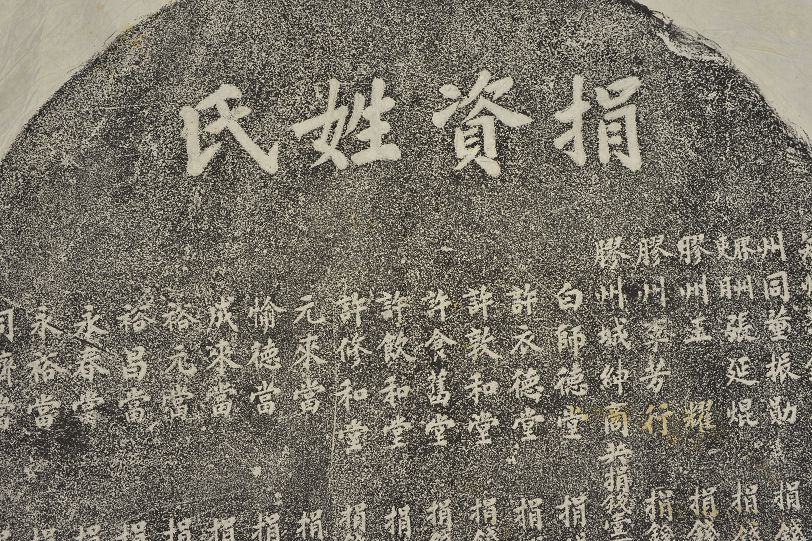 捐資姓氏
州同董振勛 捐錢
膠州張延焜 捐錢
膠州王 耀 捐錢
膠州 芳行 捐錢
膠州城紳商共捐錢
白師德堂 捐
許衣德堂 捐
許敦和堂 捐錢
許食舊堂 捐
許飲和堂 捐
許修和堂 捐錢
元來當 捐
愉德當 捐
成來當 捐
裕元當 捐
裕昌當 捐
永春當 捐
永裕當 捐